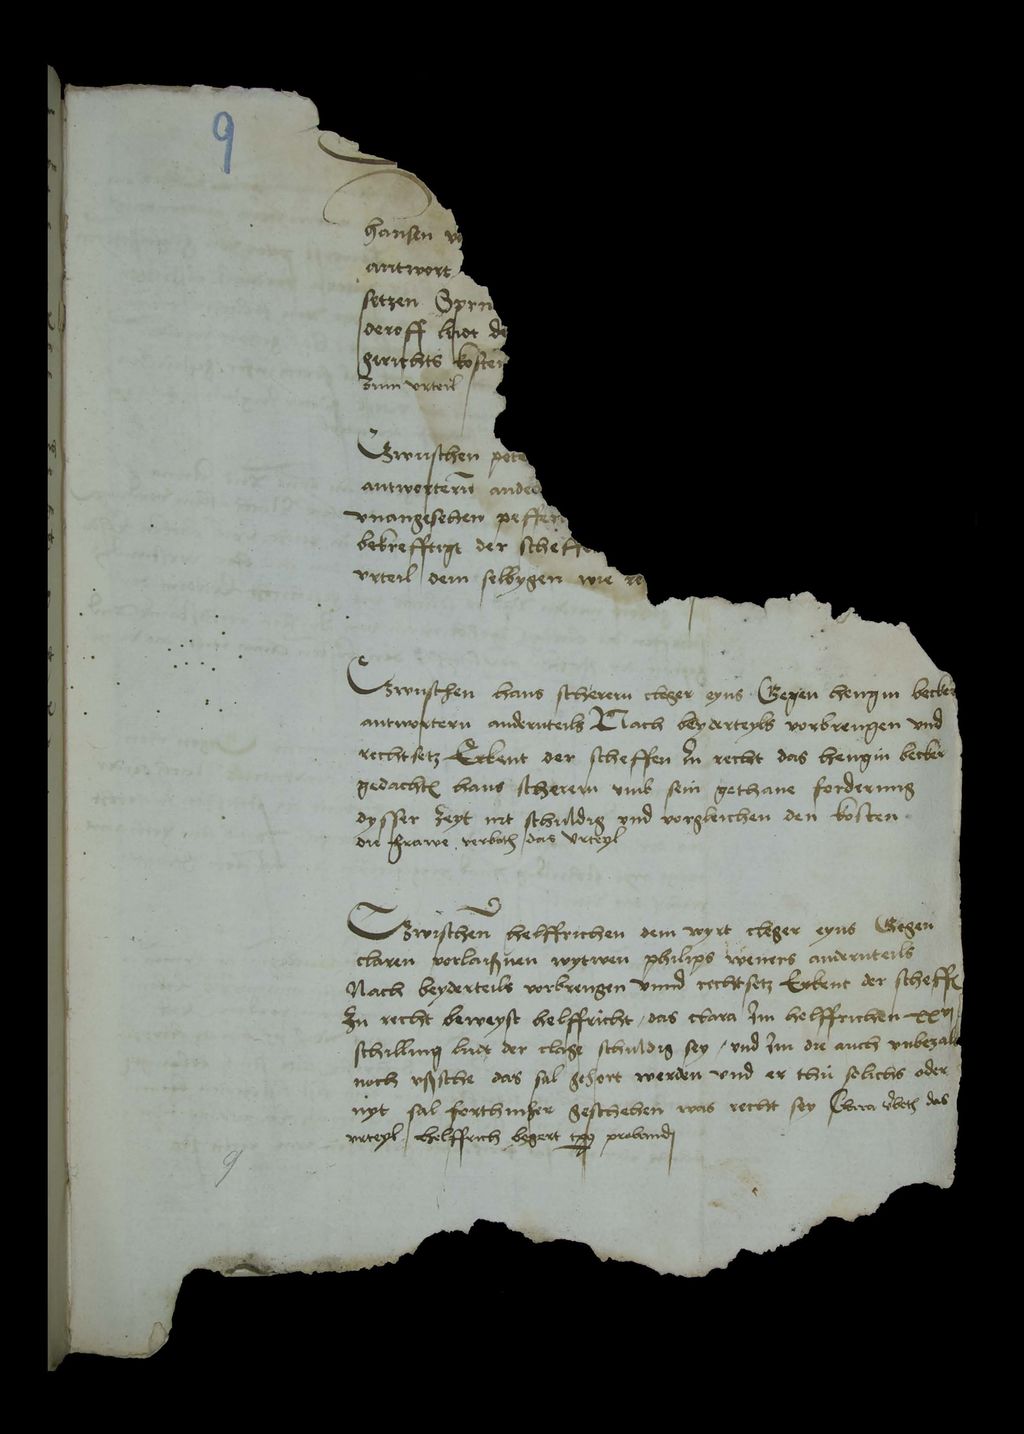 9
hansen vo
antwort
setzen Spru
deroff ludt de
gerichts koste
zum urteil
Zwuschen pete
antwortern ander
unangesehen peffer
bekrefftigt der scheff
urteil dem selbygen wie re
Zwuschen hans scherern cleger eyns Gegen hengin becker
antwortern andernteils Nach beyderteyls vorbrengen und
rechtsetz Erkent der scheffen In recht das hengin becker
gedacht hans scherern umb sein gethane forderung
dysser zeyt nit schuldig und vorgleichen den kosten
die frawe verboth das urteyl
Zwischen helffrichen dem wyrt cleger eyns Gegen
claren vorlaißnen wytwen philips weners andernteils
Nach beyderteils vorbrengen unnd rechtsetz Erkent der scheff
In recht beweyst helffricht das clara Im helffrichen xxvj
schilling ludt der clage schuldig sey / und Im die auch unbezalt
noch ußsthe das sal gehort werden und er thu solichs oder
nyt sal forthinher geschehen was recht sey Clara verboth das
urteyl helffrich begert probandj
9